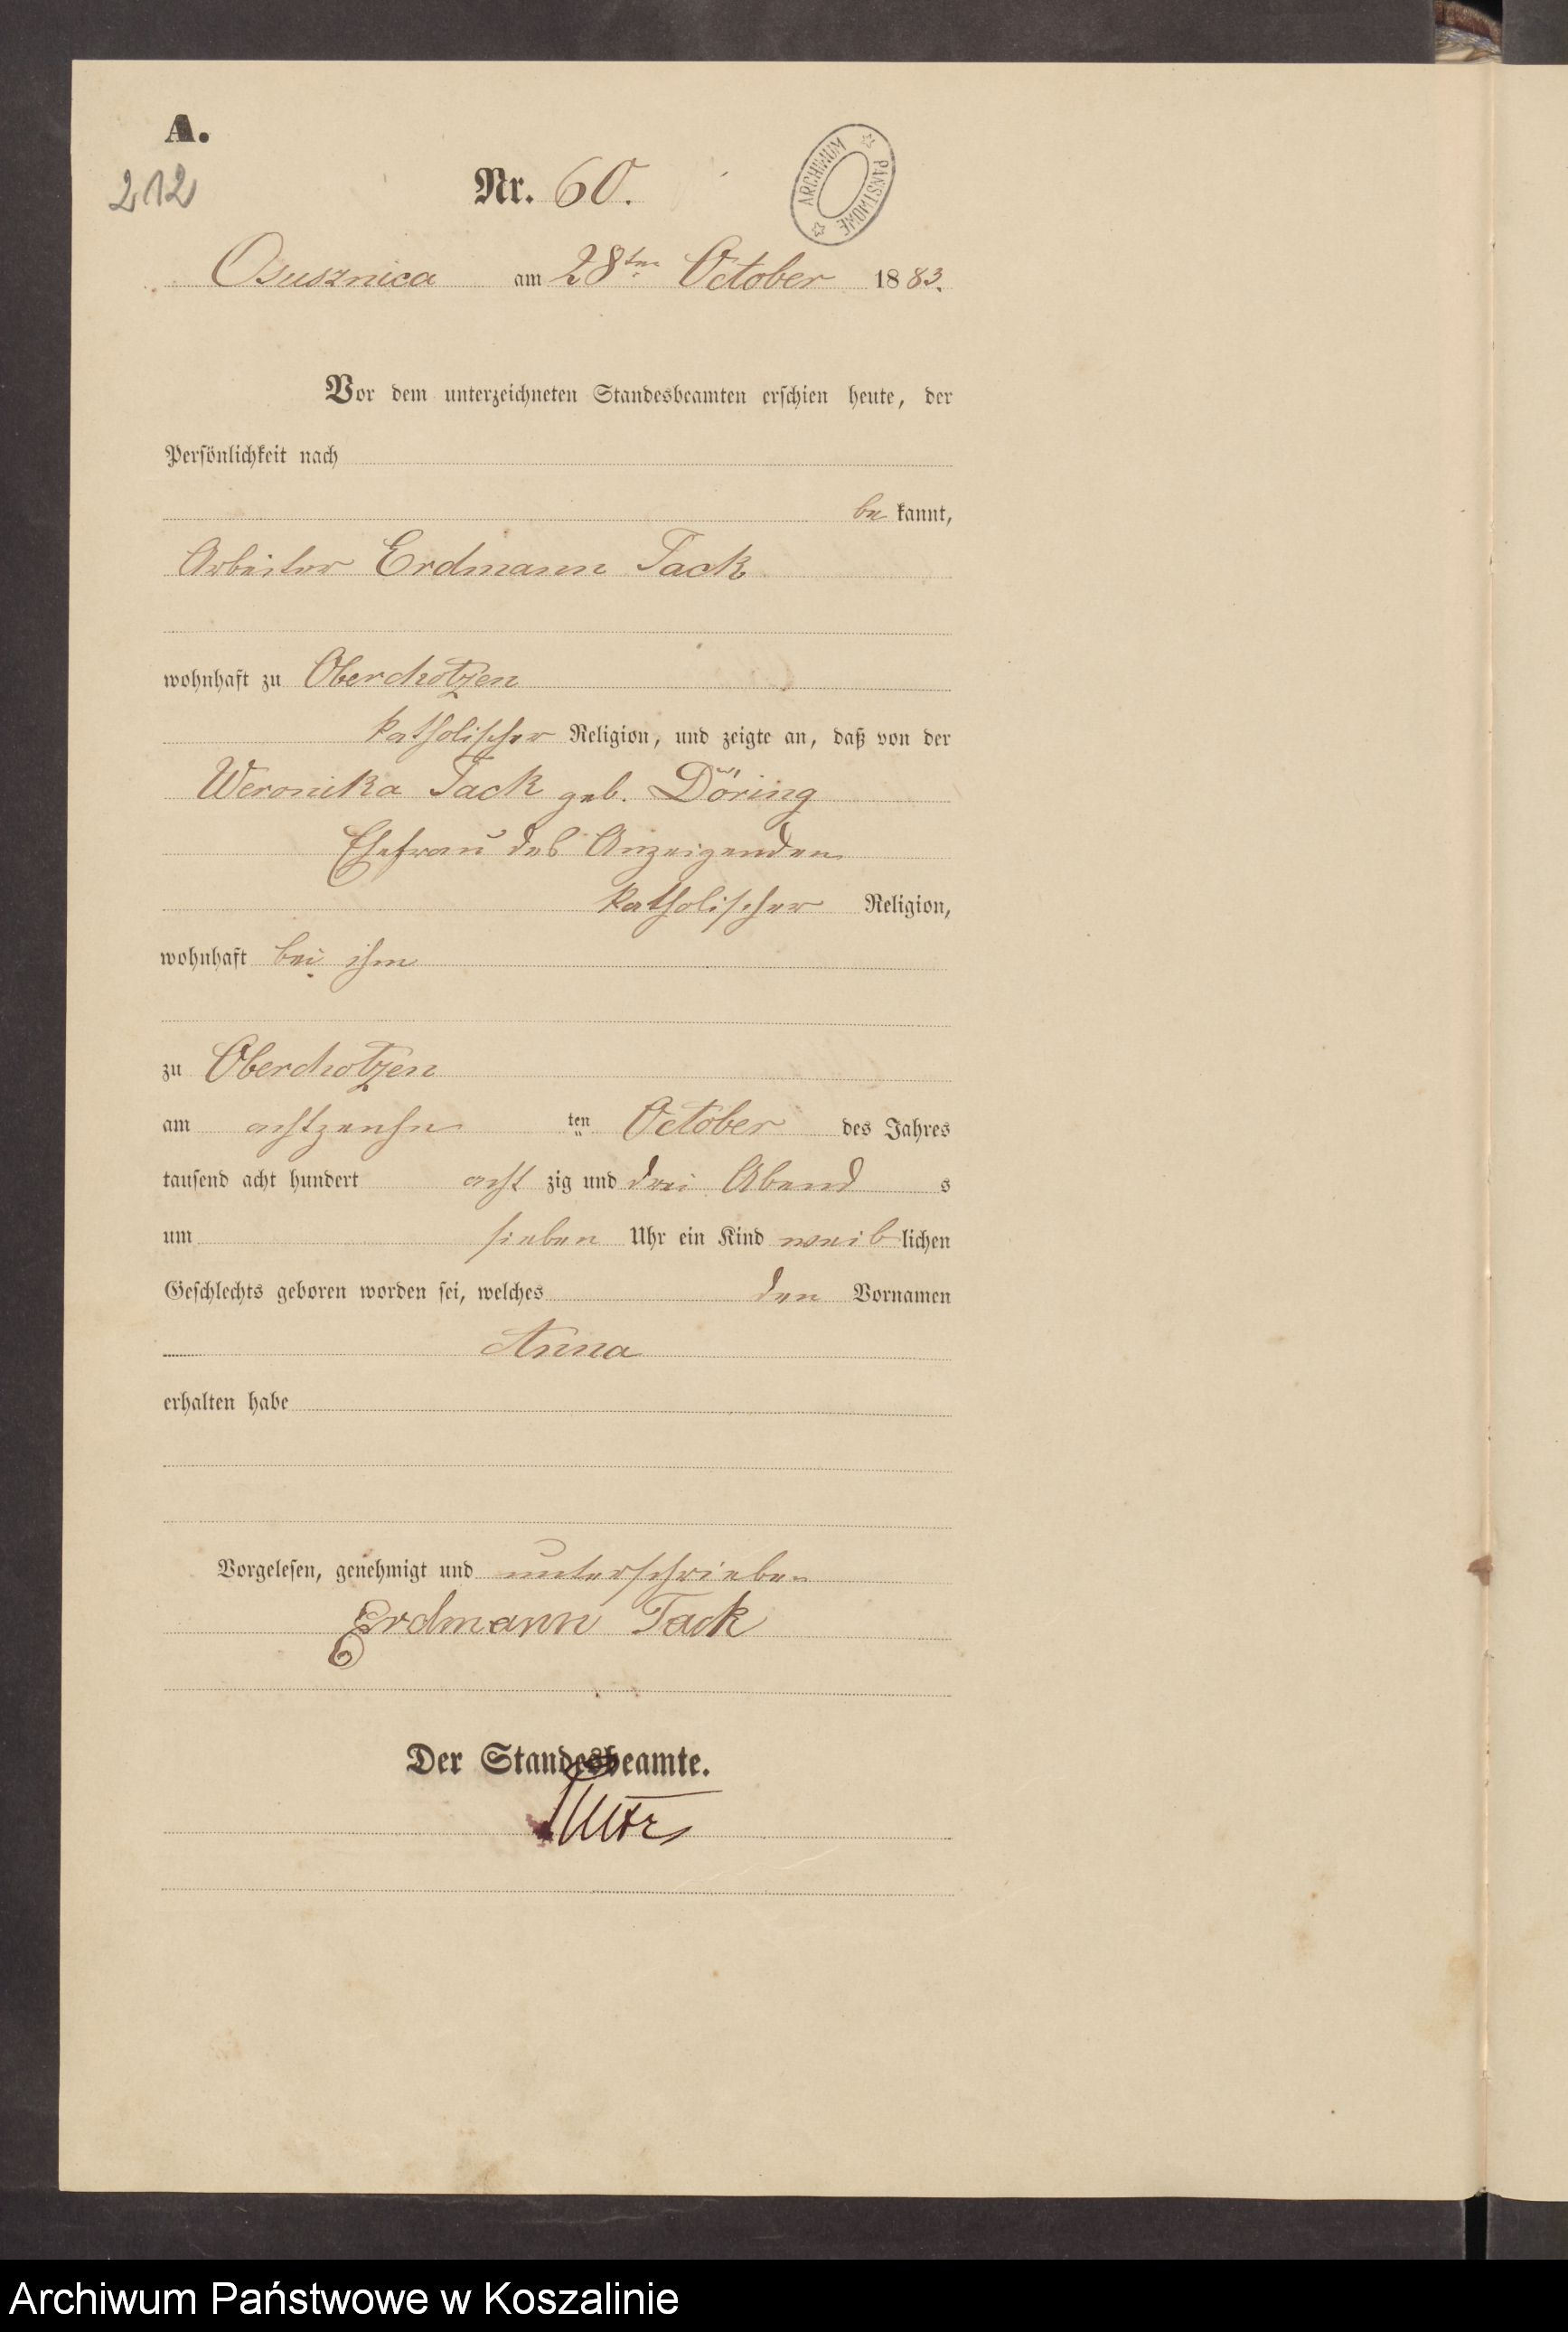 A.
212
Nr. 60.
ARCHIWUM PAŃSTWOWE
Osusznica am 28ten October 1883.
Vor dem unterzeichneten Standesbeamten erschien heute, der
Persönlichkeit nach
be kannt,
Arbeiter Erdmann Tack
wohnhaft zu Oberchotzen
katholischer Religion, und zeigte an, daß von der
Weronika Tack geb. Döring
Ehefrau des Anzeigenden
katholischer Religion,
wohnhaft bei ihm
zu Oberchotzen
am achtzehn ten October des Jahres
tausend acht hundert acht zig und drei Abend s
um sieben Uhr ein Kind weib lichen
Geschlechts geboren worden sei, welches den Vornamen
Anna
erhalten habe
Vorgelesen, genehmigt und unterschrieben
Erdmann Tack
Der Standesbeamte.
Archiwum Państwowe w Koszalinie